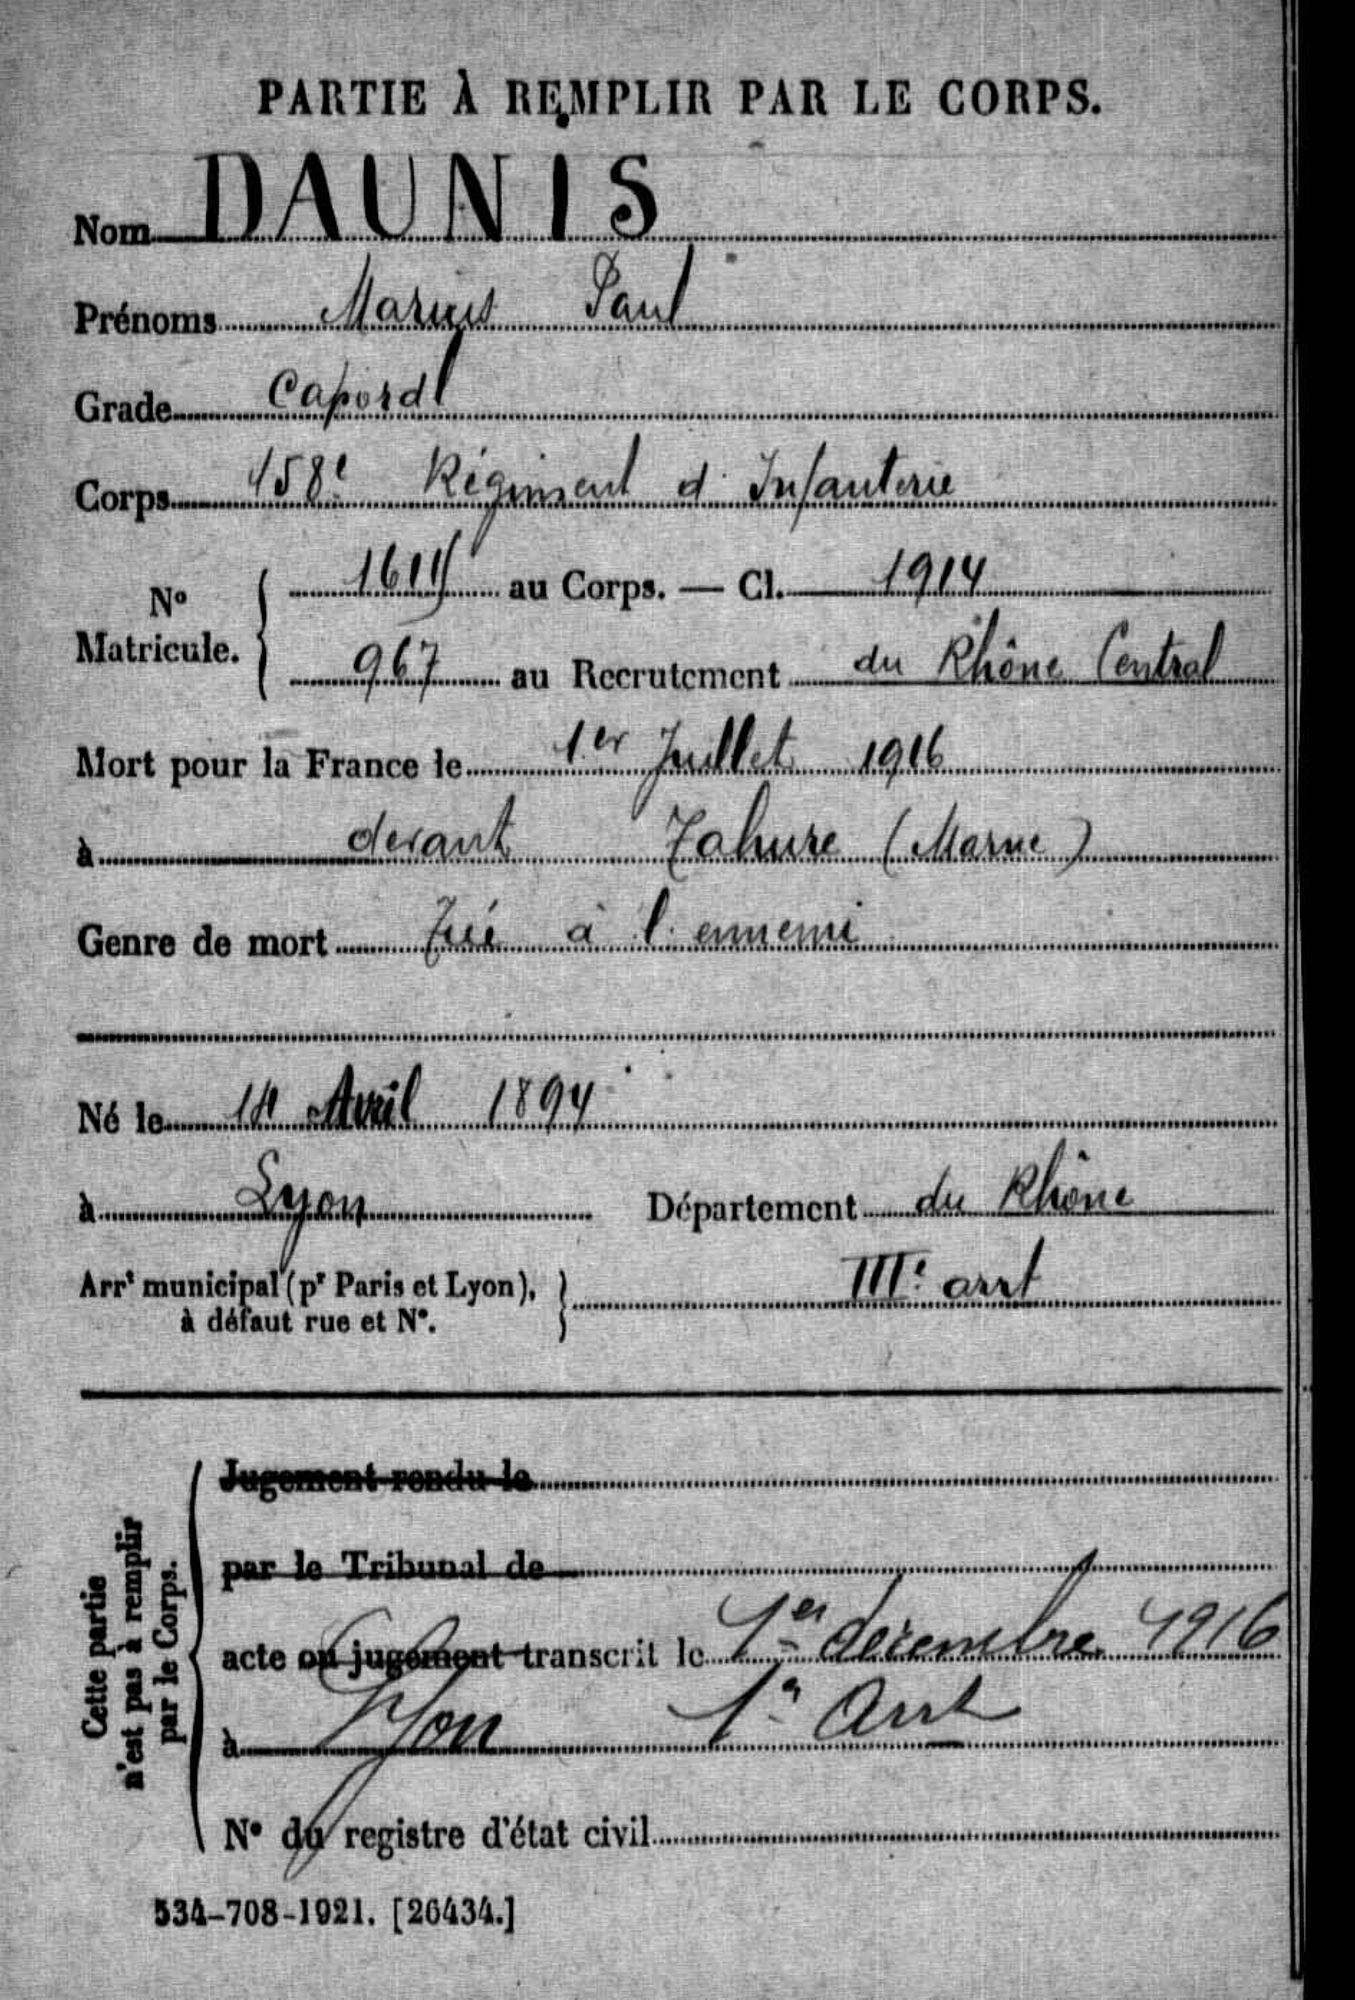 PARTIE À REMPLIR PAR LE CORPS.
Nom DAUNIS
Prénoms Marius Paul
Grade Caporal
Corps 158e Régiment d'Infanterie
No Matricule. au Corps. — Cl. 1914
967 au Recrutement du Rhône Central
Mort pour la France le 1er Juillet 1916
à devant Tahure (Marne)
Genre de mort Tué à l'ennemi
Né le Avril 1894
à Lyon Département du Rhône
Arrt municipal (pr Paris et Lyon), à défaut rue et No. IIIe arrt
Cette partie n'est pas à remplir par le Corps.
Jugement rendu le
par le Tribunal de
acte ou jugement transcrit le 1er décembre 1916
à Lyon 1er Arrt
No du registre d'état civil
534-708-1921. [26434.]